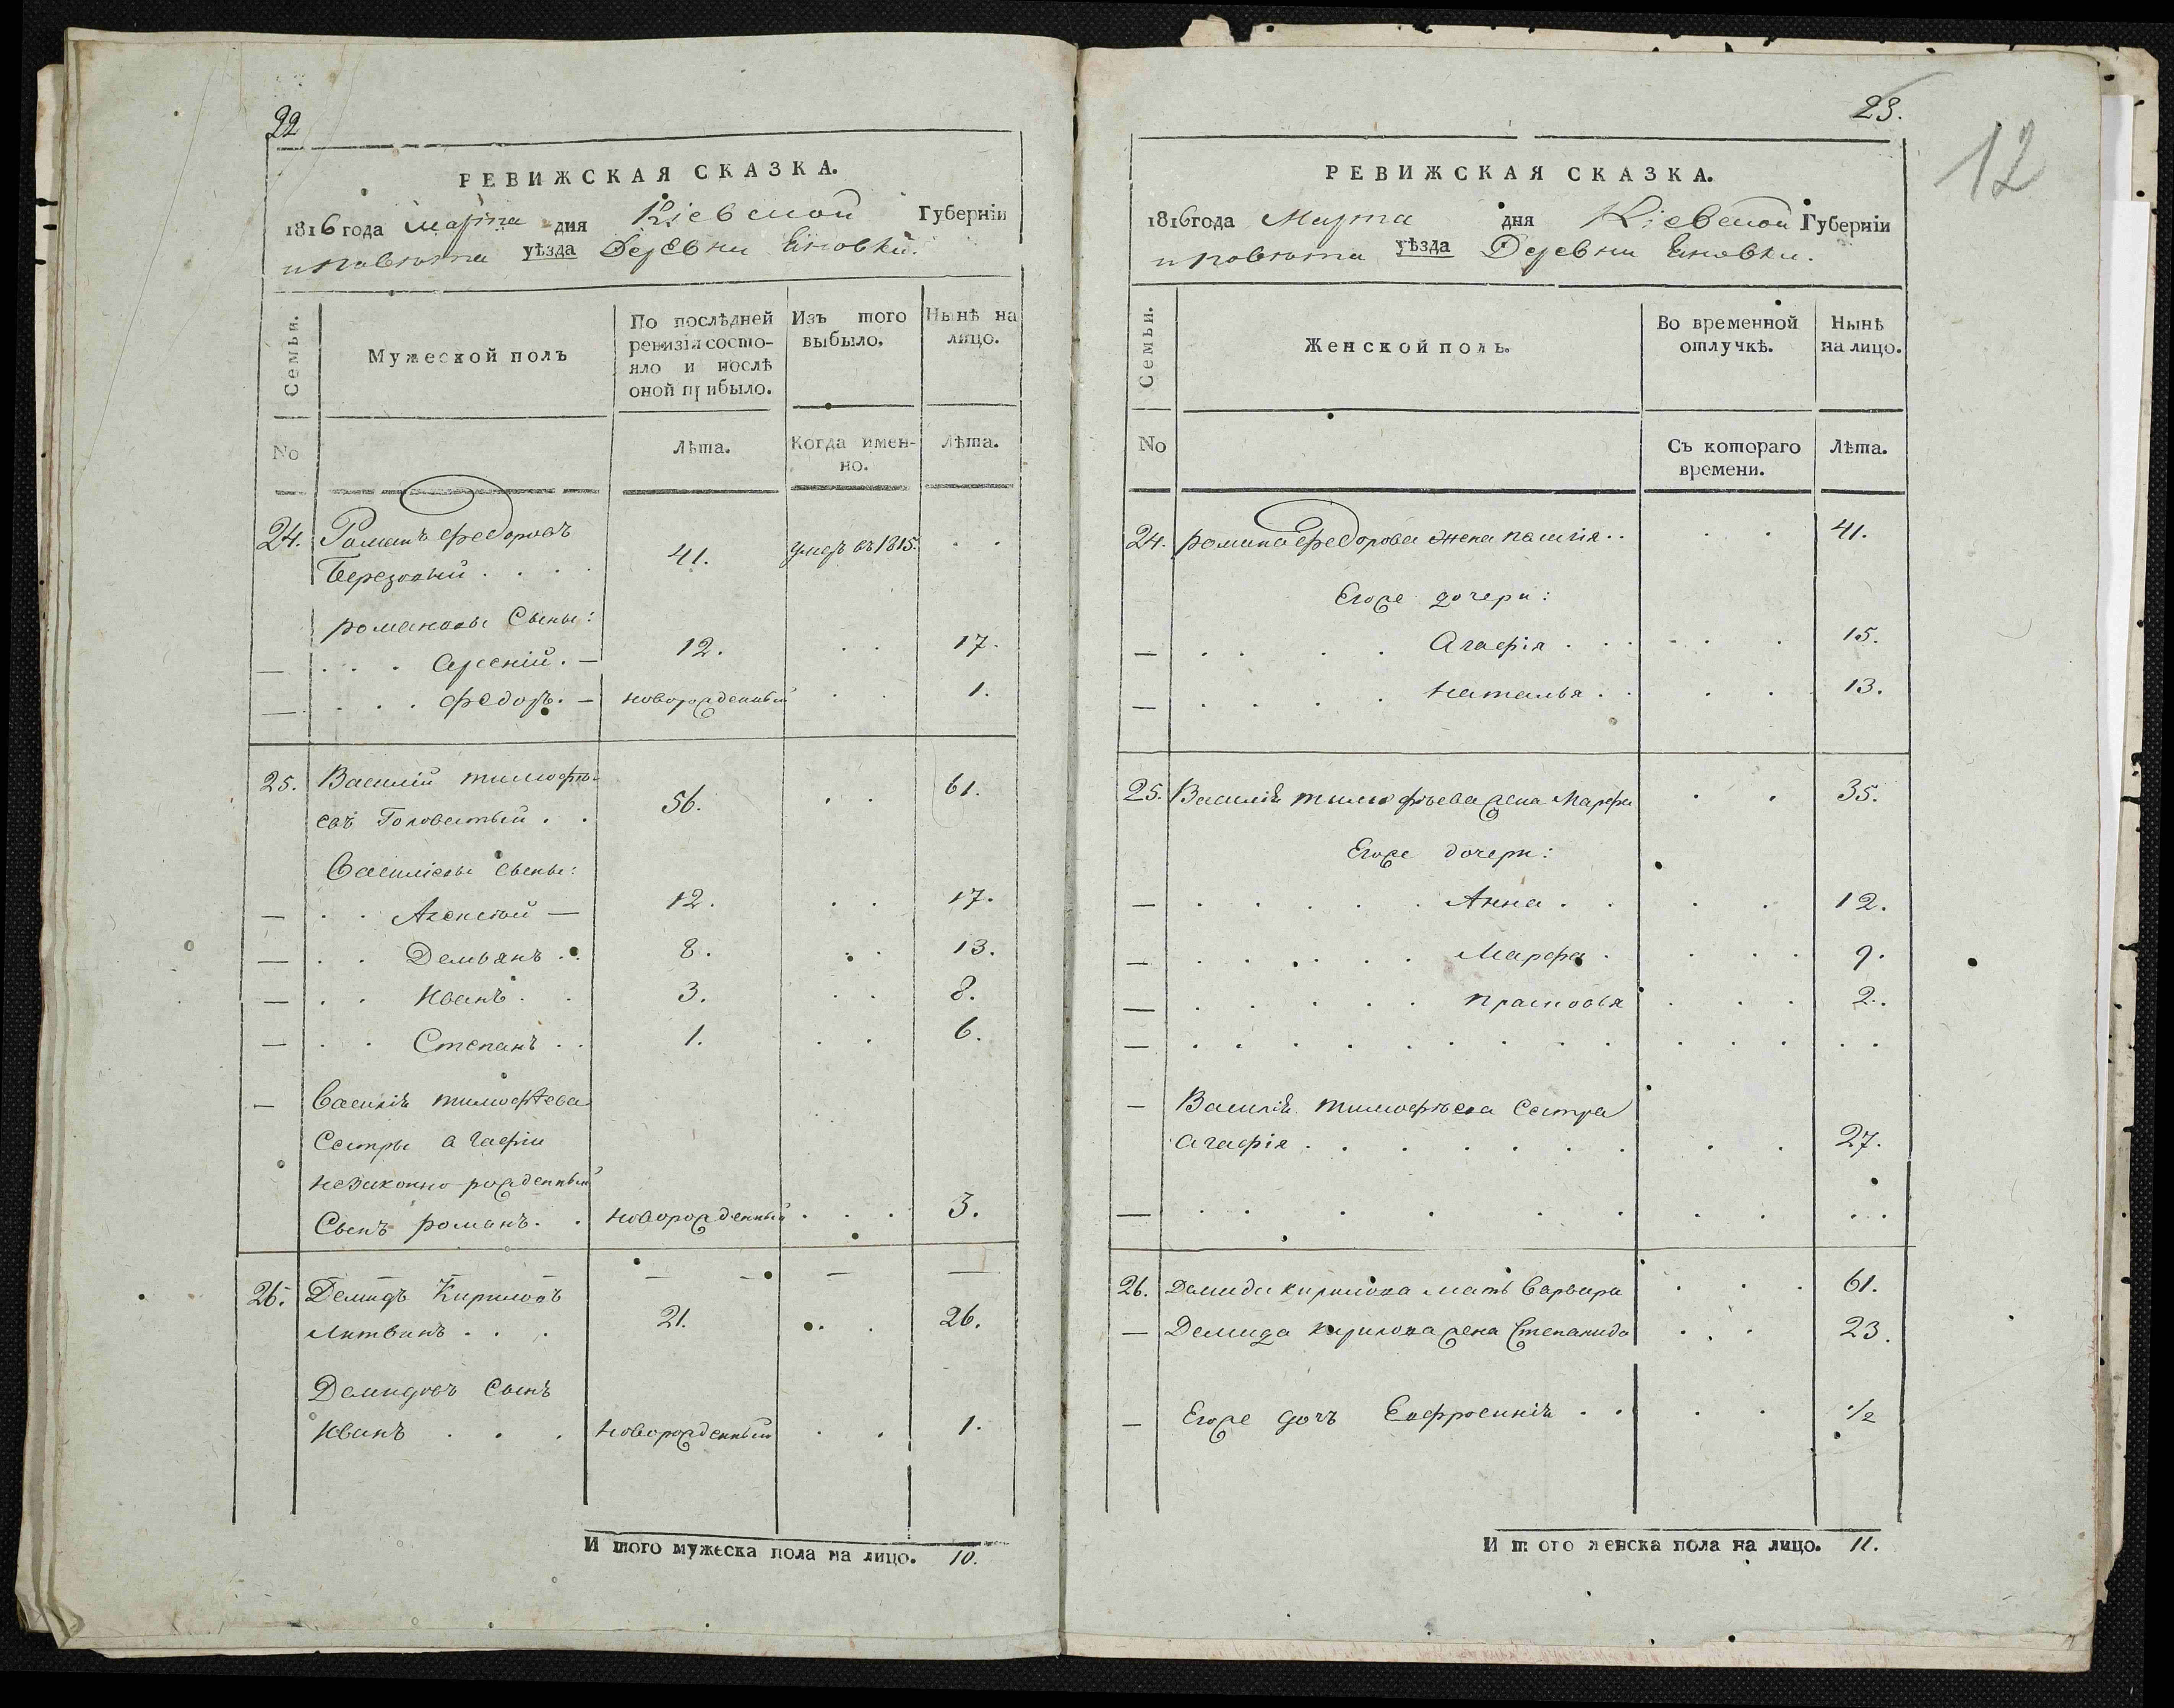 22
РЕВИЖСКАЯ СКАЗКА.
1816 года Марта дня Кіевской Губерніи
и повѣта уѣзда Деревни Еновки.
Семьи.
Мужеской полъ
По послѣдней ревизіи состояло и послѣ оной прибыло.
Изъ того выбыло.
Нынѣ на лицо.
No
Лѣта.
Когда именно.
Лѣта.
24. Романъ Федоровъ
Березовый . . . . 41. умеръ въ 1815. . .
Романовы Сыны:
— . . . Арсеній. — 12. . . 17.
— . . . Федоръ. — новорожденный . . 1.
25. Василій Тимофѣ-
евъ Головатый . . 56. . . 61.
Василіевы сыны:
— . . Алексѣй — 12. . . 17.
— . . Демьянъ . . 8. . . 13.
— . . Иванъ . . 3. . . 8.
— . . Степанъ . . 1. . . 6.
— Василія Тимофѣева
Сестры Агафіи
незаконно рожденный
Сынъ Романъ. . новорожденный . . . 3.
26. Демидъ Кириловъ — — — —
Литвинъ . . . 21. . . 26.
Демидовъ Сынъ
Иванъ . . . новорожденный . . 1.
И того мужеска пола на лицо. 10.
23.
12
РЕВИЖСКАЯ СКАЗКА.
1816 года Марта дня Кіевской Губерніи
и повѣта уѣзда Деревни Еновки.
Семьи.
Женской полъ.
Во временной отлучкѣ.
Нынѣ на лицо.
No
Съ котораго времени.
Лѣта.
24. Романа Федорова жена . . . . 41.
Егоже дочери:
— . . . . Агафія . . . . . . 15.
— . . . . Наталья . . . . 13.
25. Василія Тимофѣева жена Марфа . . 35.
Егоже дочери:
— . . . . . Анна . . . . 12.
— . . . . . Марфа . . . . 9.
— . . . . . Прасковья . . . 2.
— . . . . . . . . . . . . . .
— Василія Тимофѣева Сестра
Агафія . . . . . . . . . 27.
— . . . . . . . . . . .
26. Демида Кирилова мать Варвара . . . 61.
— Демида Кирилова жена Степанида . . . 23.
— Егоже дочь Евфросинія . . . . 1/2
И того женска пола на лицо. 11.